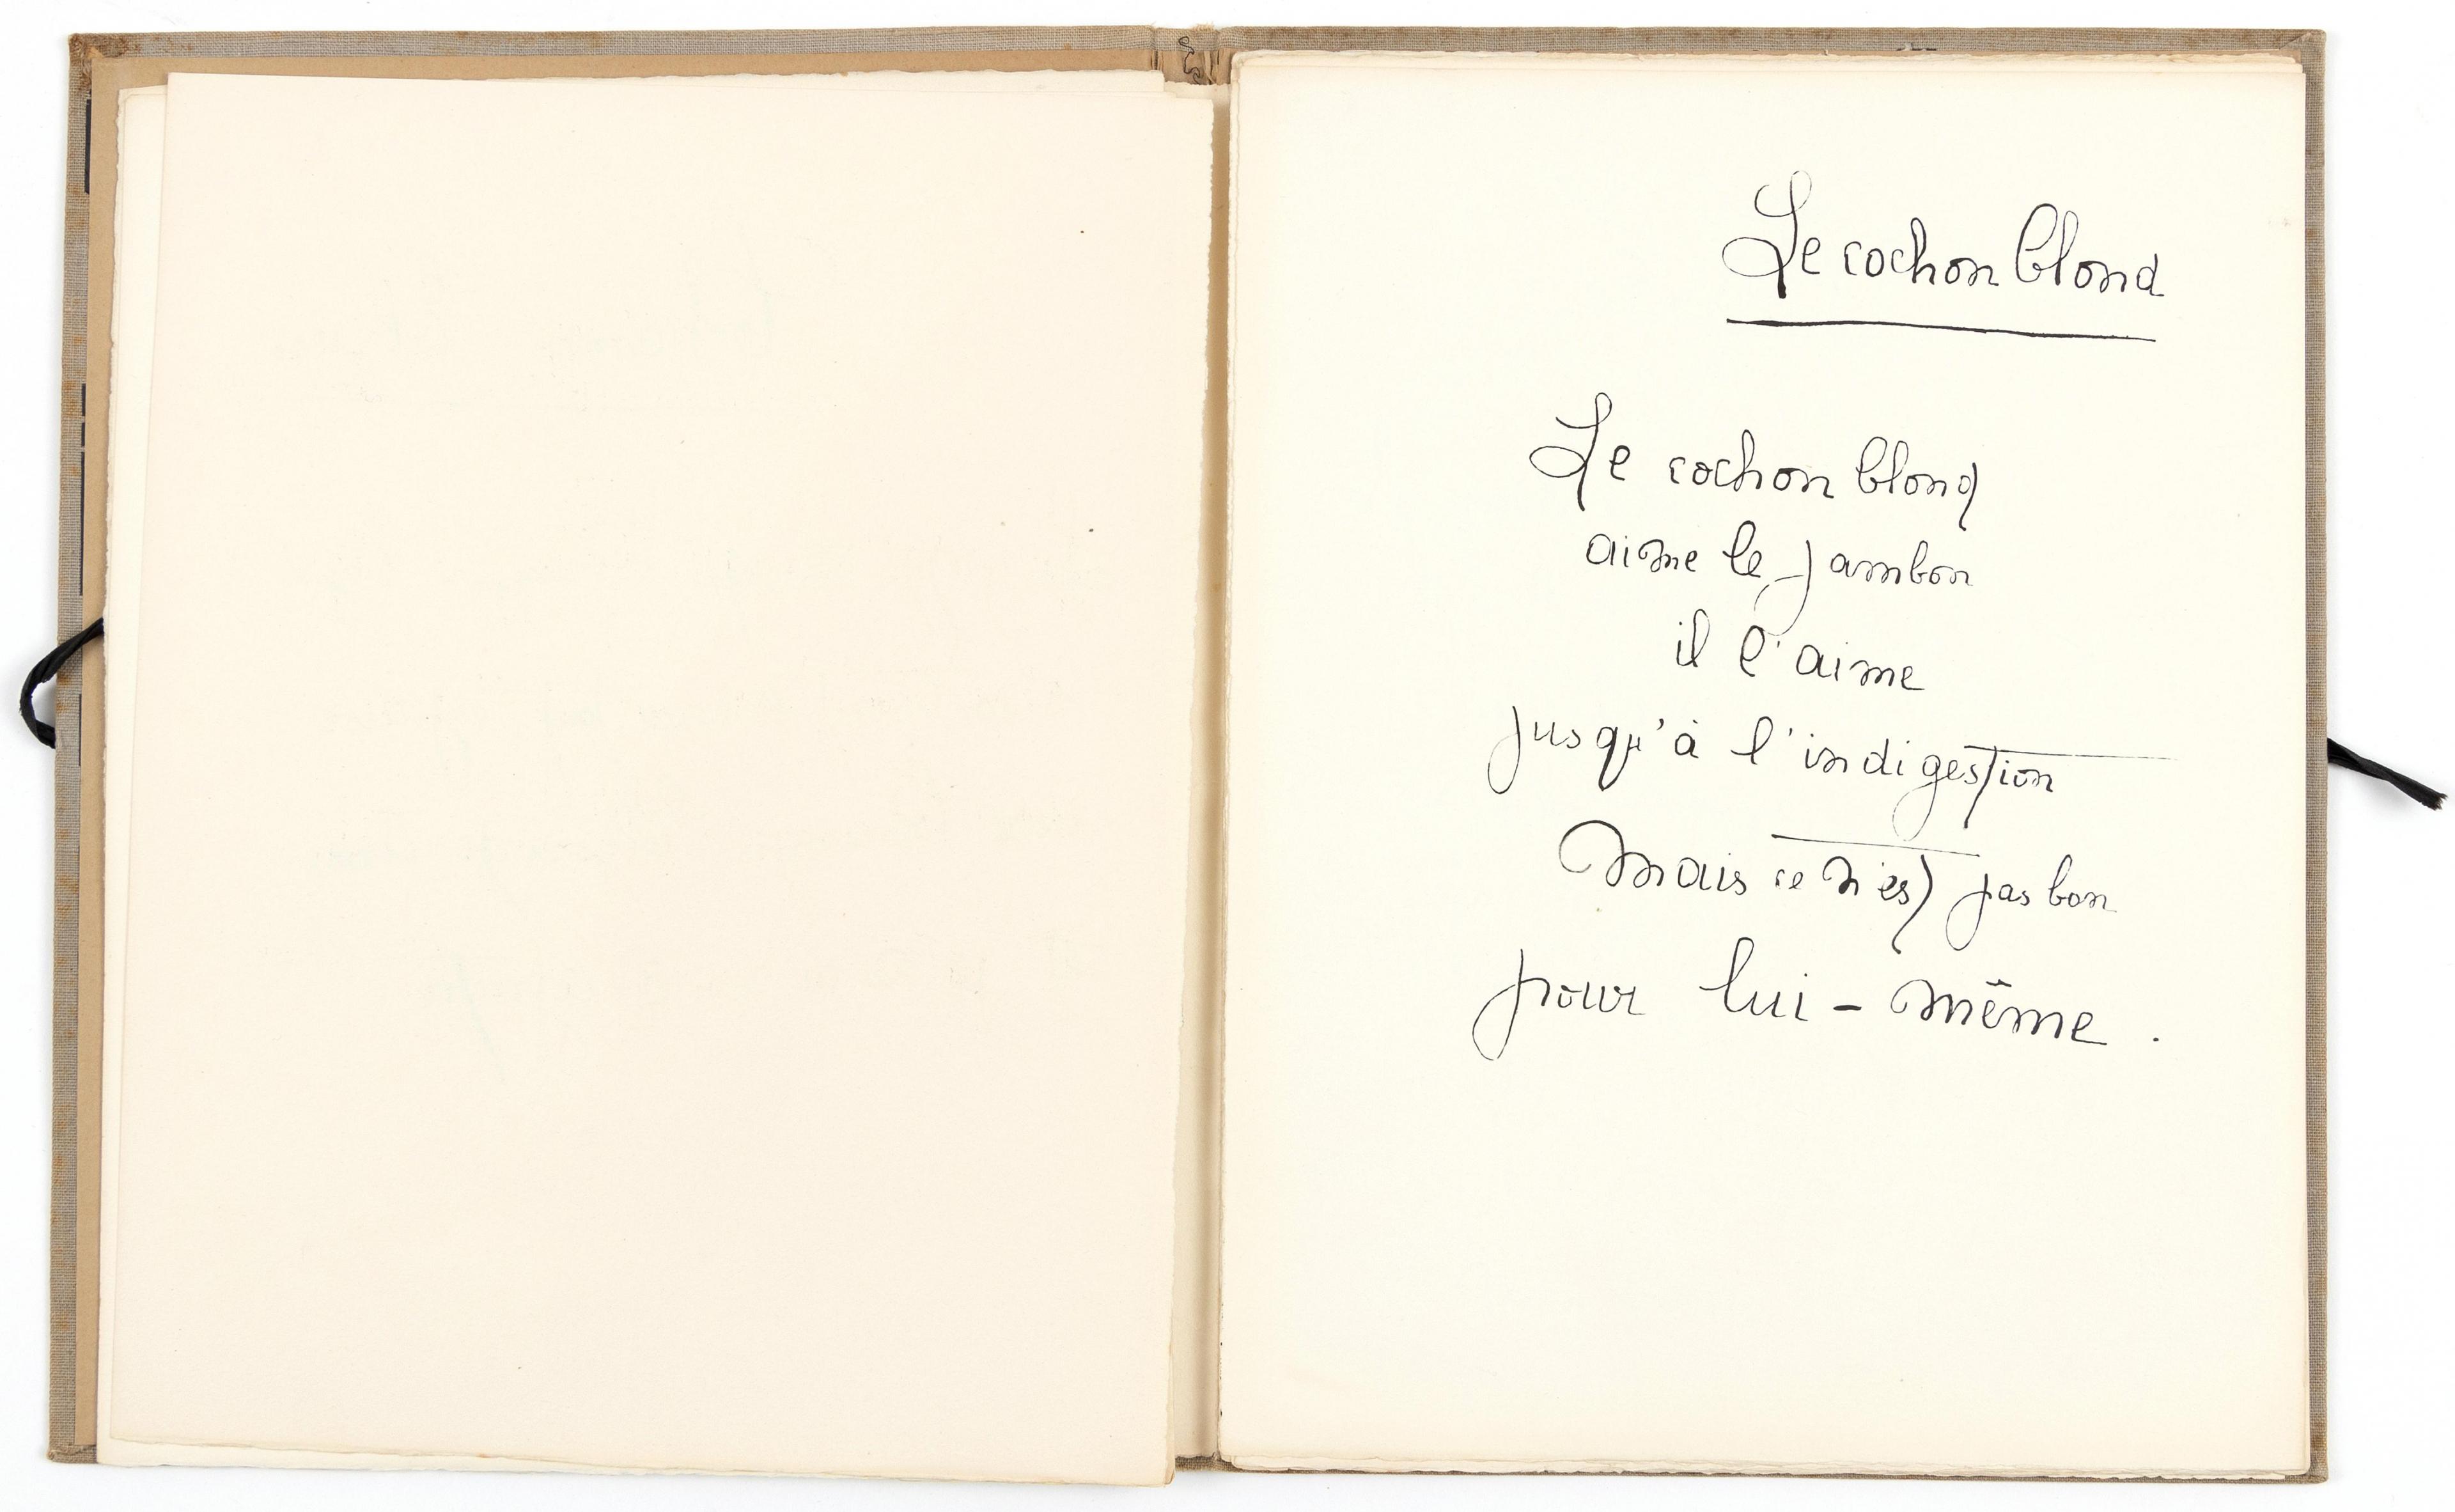 Le cochon blond
Le cochon blond
aime le jambon
il l'aime
jusqu'à l'indigestion
Mais ce n'est pas bon
pour lui-même.